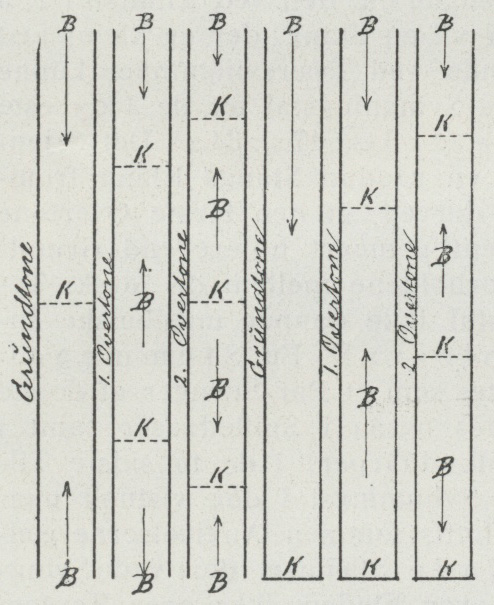 B B B B B B
K
K
K
K
B
B
Grundtone
1. Overtone
2. Overtone
Grundtone
1. Overtone
2. Overtone
K
B
K
K
B
B
K
B
K
B B B K K K